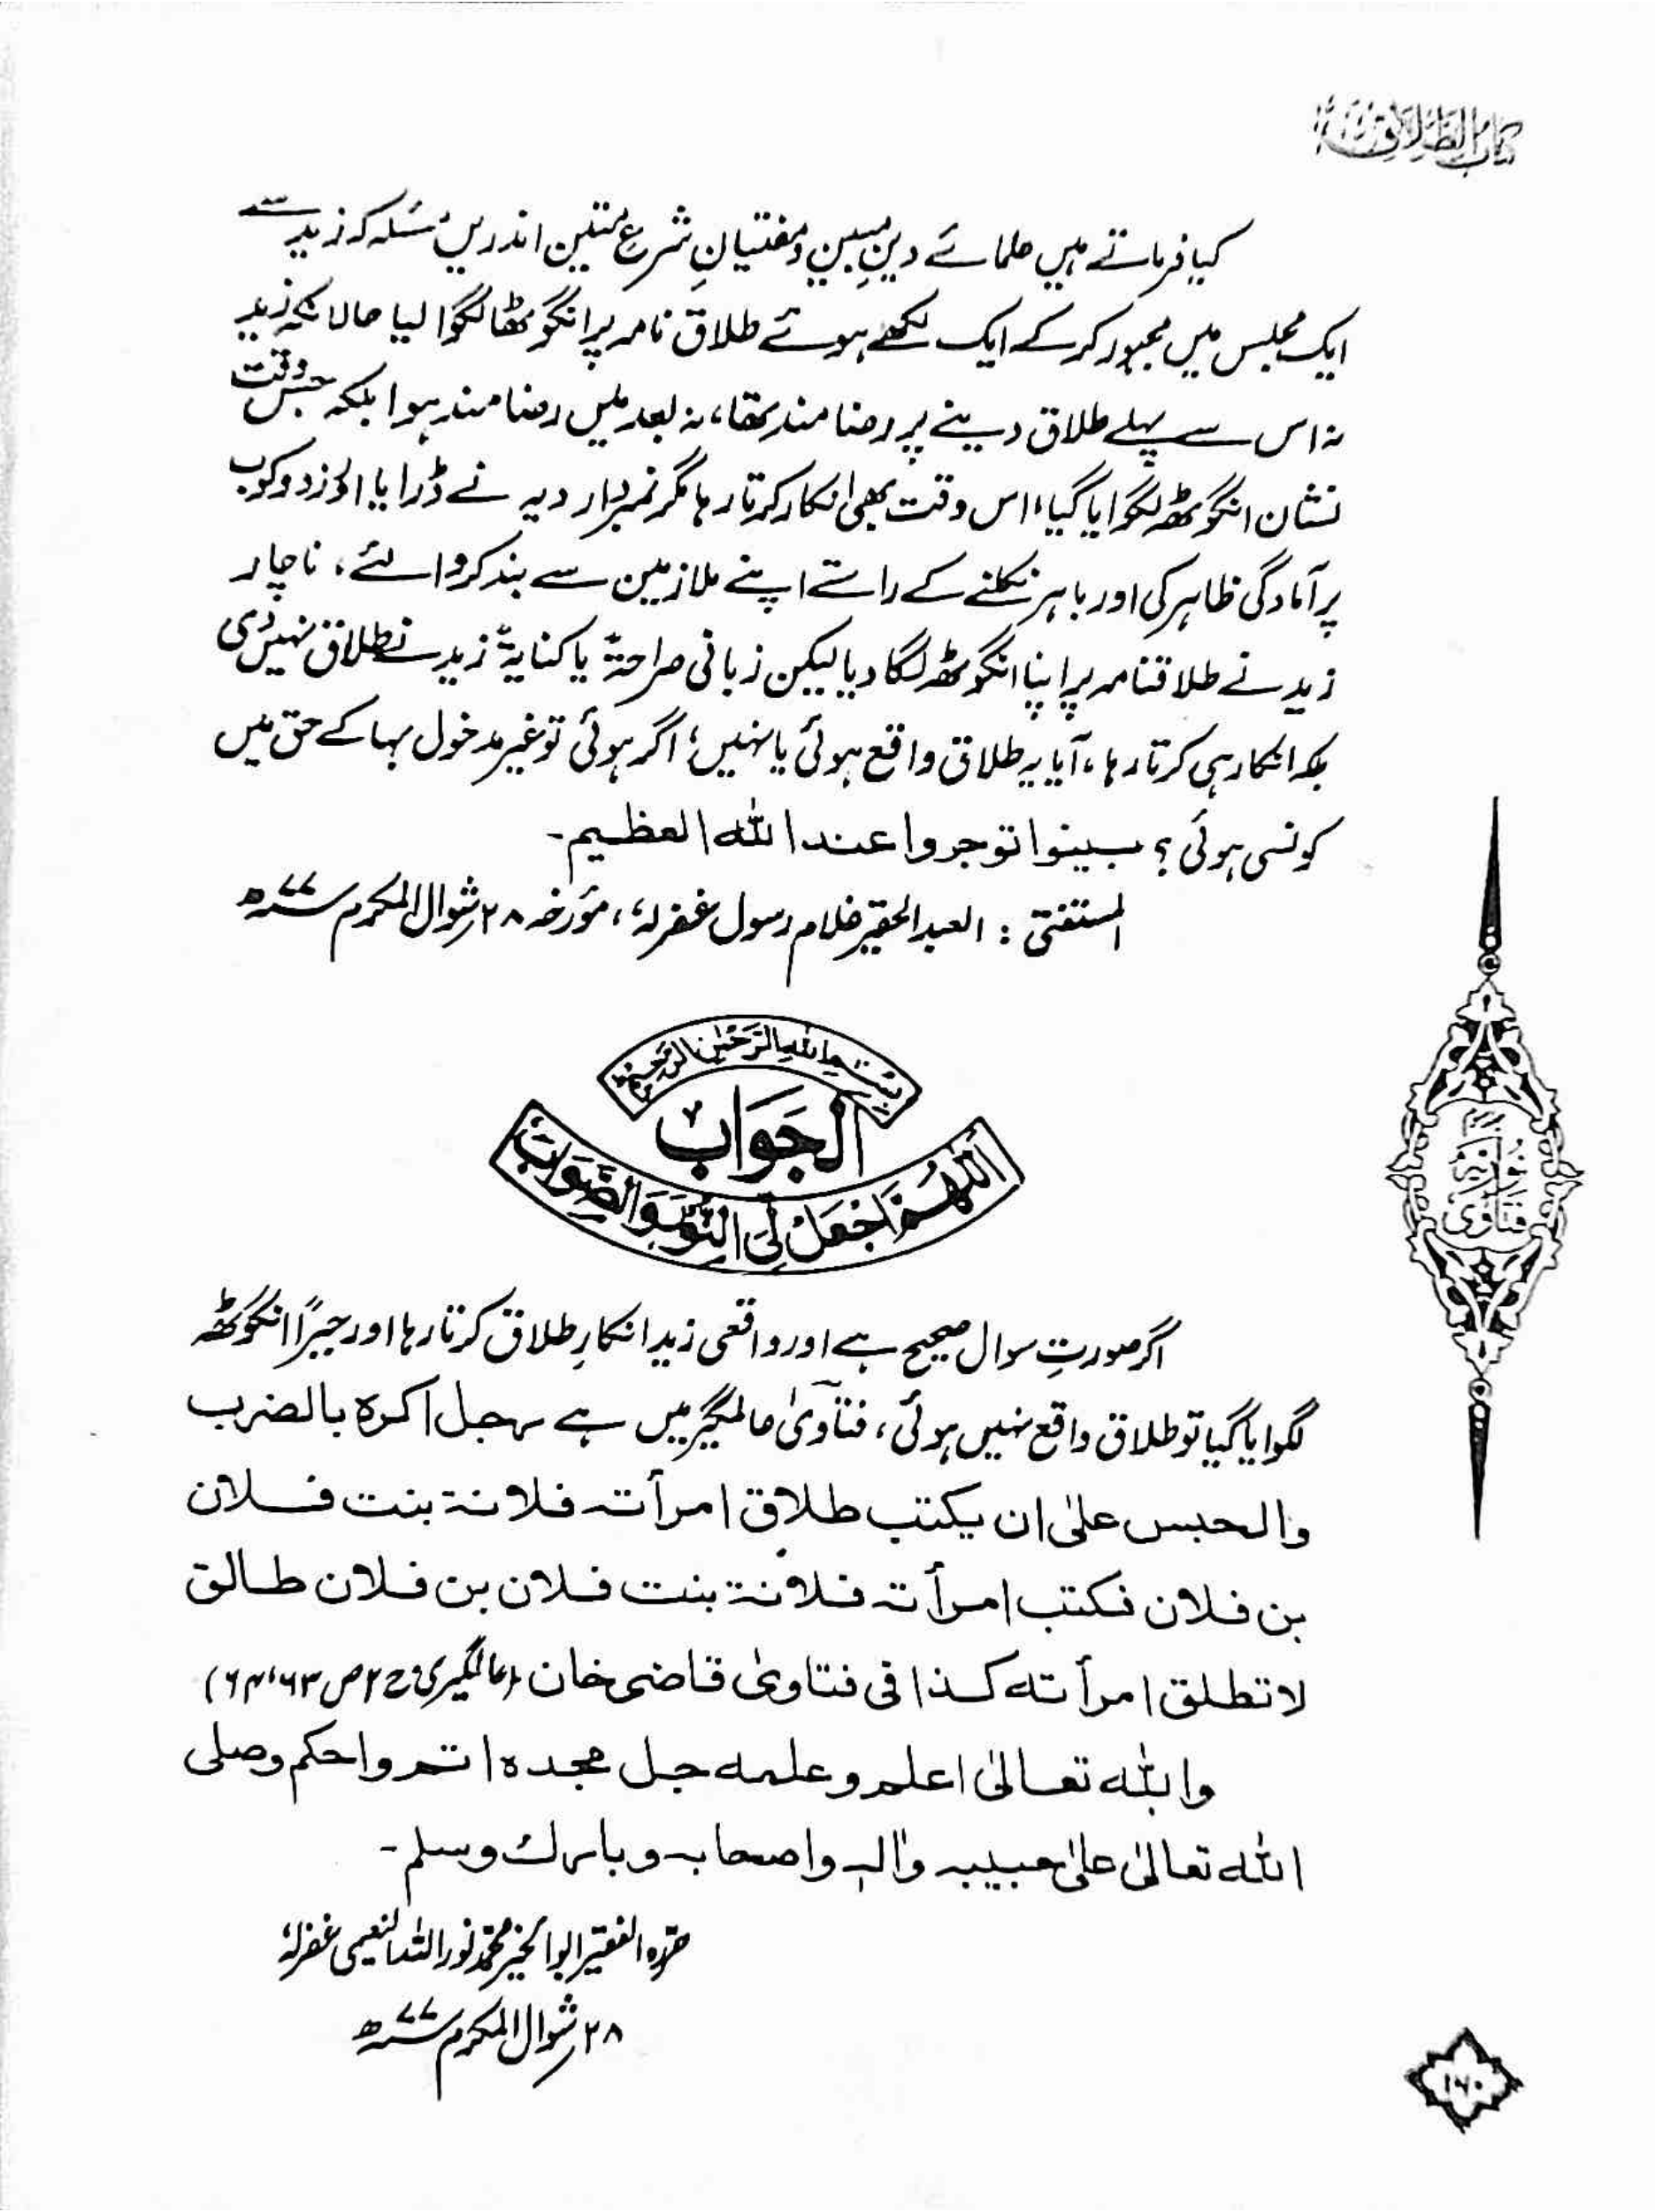 کتاب الطلاق
کیا فرماتے ہیں علمائے دینِ مبین و مفتیانِ شرعِ متین اندریں مسئلہ کہ زید سے
ایک مجلس میں مجبور کر کے ایک لکھے ہوئے طلاق نامہ پر انگوٹھا لگوا لیا حالانکہ زید
نہ اس سے پہلے طلاق دینے پر رضا مند تھا، نہ بعد میں رضا مند ہوا بلکہ جس وقت
نشان انگوٹھہ لگوایا گیا، اس وقت بھی انکار کرتا رہا مگر نمبردار دیہہ نے ڈرایا اور زد و کوب
پر آمادگی ظاہر کی اور باہر نکلنے کے راستے اپنے ملازمین سے بند کروا لئے، ناچار
زید نے طلاقنامہ پر اپنا انگوٹھہ لگا دیا لیکن زبانی صراحۃً یا کنایۃً زید نے طلاق نہیں دی
بلکہ انکار ہی کرتا رہا، آیا یہ طلاق واقع ہوئی یا نہیں؛ اگر ہوئی تو غیر مدخول بہا کے حق میں
کونسی ہوئی؟ بینوا توجروا عند اللہ العظیم۔
المستفتی : العبد الحقیر غلام رسول غفرلہٗ، مؤرخہ ۲۸ شوال المکرم ۷۷ ھ
بِسْمِ اللهِ الرَّحْمٰنِ الرَّحِيْمِ
اَلْجَوَابُ
اَللّٰهُمَّ اجْعَلْ لِّيَ النُّوْرَ وَالصَّوَابَ
اگر صورتِ سوال صحیح ہے اور واقعی زید انکارِ طلاق کرتا رہا اور جبراً انگوٹھہ
لگوایا گیا تو طلاق واقع نہیں ہوئی، فتاویٰ عالمگیر میں ہے رجل اکرہ بالضرب
والحبس علیٰ ان یکتب طلاق امرأتہ فلانۃ بنت فلان
بن فلان فکتب امرأتہ فلانۃ بنت فلان بن فلان طالق
لا تطلق امرأتہ کذا فی فتاویٰ قاضی خان (عالمگیری ج ۲ ص ۶۳، ۶۴)
واللہ تعالیٰ اعلم وعلمہ جل مجدہ اتم واحکم وصلی
اللہ تعالیٰ علیٰ حبیبہ واٰلہٖ واصحابہ وبارک وسلم۔
حررہ الفقیر ابوالخیر محمد نور اللہ النعیمی غفرلہٗ
۲۸ شوال المکرم ۷۷ ھ
فتاویٰ نوریہ
۱۶۰